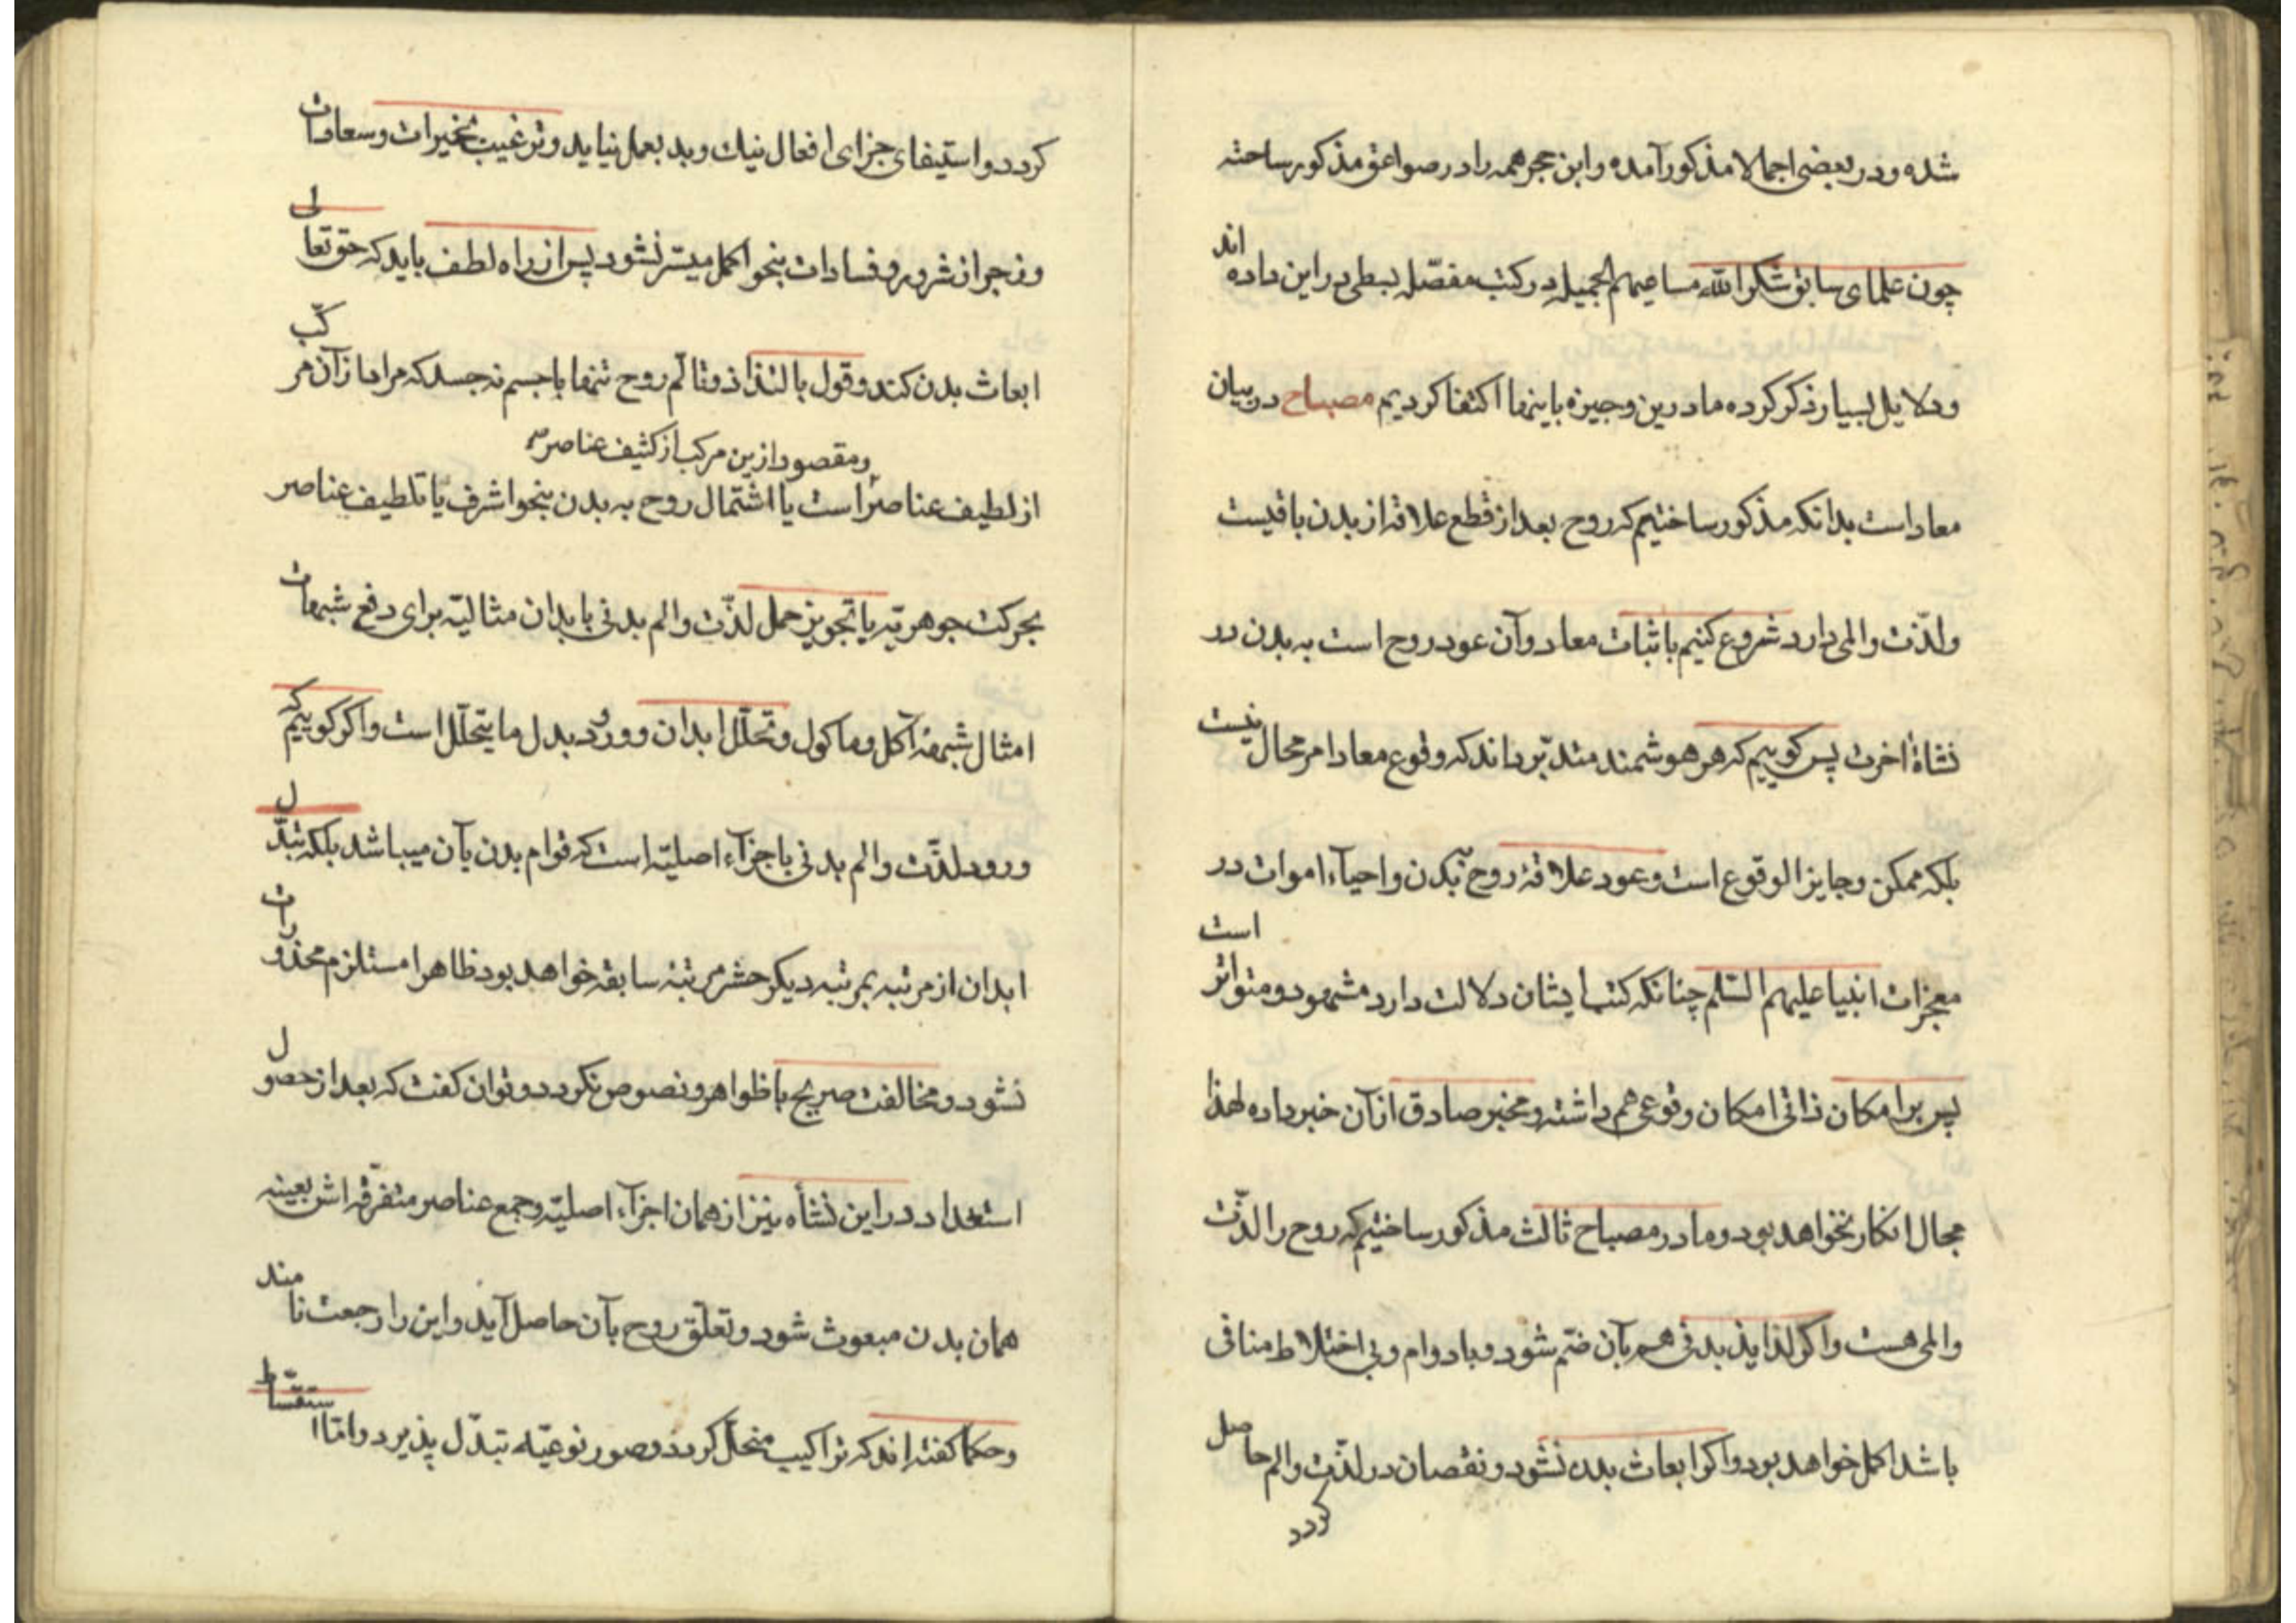 شده ودر بعضی اجمالا مذکور آمده وابن حجر همه را در صواعق مذکور ساخته
چون علمای سابق شکر الله مساعیهم الجمیله در کتب مفصّله بسطی در این داده اند
ودلایل بسیار ذکر کرده ما درین وجیزه باینها اکتفا کردیم مصباح در بیان
معاد است بدانکه مذکور ساختیم که روح بعد از قطع علاقه از بدن باقیست
ولذّت والمی دارد شروع کنیم باثبات معاد وآن عود روح است به بدن در
نشاة اخرت پس کوییم که هر هوشمند متدبّر داند که وقوع معاد امر محال نیست
بلکه ممکن وجایز الوقوع است وعود علاقه روح ببدن واحیآء اموات در
معجزات انبیا علیهم السّلم چنانکه کتب ایشان دلالت دارد مشهود ومتواتر است
پس برا مکان ذاتی امکان وقوعی هم داشته ومخبر صادق از آن خبر داده لهذا
مجال انکار نخواهد بود وما در مصباح ثالث مذکور ساختیم که روح را لذّت
والمی هست واکر لذایذ بدنی هم بآن ضمّ شود وبا دوام وبی اختلاط منافی
باشد اکمل خواهد بود واکر ابعاث بدن نشود ونقصان در لذّت والم حاصل
کردد
کردد واستیفای جزای افعال نیك وبد بعمل نیاید وترغیب بخیرات وسعادات
وزجر از شرور وفسادات بنحو اکمل میسّر نشود پس از راه لطف باید که حق تعالی
ابعاث بدن کند وقول بالتذاذ وتالّم روح تنها با جسم نه جسد که مراد از آن مرکّب
ومقصود ازین مرکب از کثیف عناصر
از لطیف عناصر است یا اشتمال روح به بدن بنحو اشرف یا تلطیف عناصر
بحرکت جوهریّه یا تجویز حمل لذّت والم بدنی بابدان مثالیّه برای دفع شبهات
امثال شبهه آکل وماکول وتحلّل ابدان وورود بدل ما یتحلّل است واکر کوییم که
ورود لذّت والم بدنی باجزآء اصلیّه است که قوام بدن بآن میباشد بلکه تبدّل
ابدان از مرتبه بمرتبه دیکر حشر مرتبه سابقه خواهد بود ظاهرا مستلزم محذورات
نشود ومخالفت صریح با ظواهر ونصوص نکردد وتوان کفت که بعد از حصول
استعداد در این نشأه نیز از همان اجزآء اصلیّه وجمع عناصر متفرّقه اش بعینه
همان بدن مبعوث شود وتعلّق روح بآن حاصل آید واین را رجعت نامند
وحکما کفته اند که تراکیب منحلّ کردد وصور نوعیّه تبدّل پذیرد وامّا استقسّاط